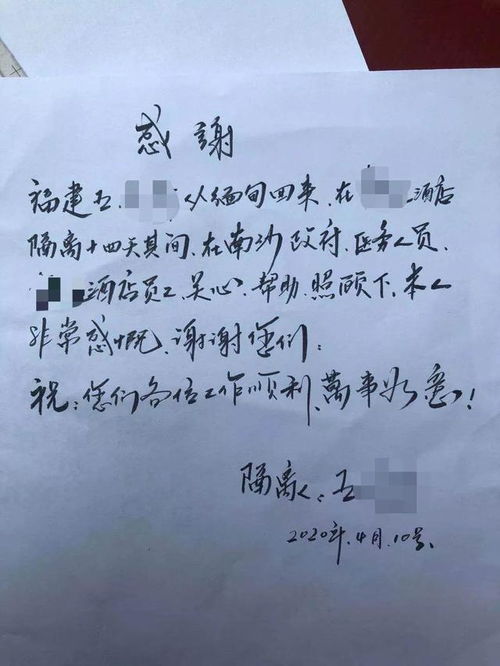 感謝
福建王 从缅甸回来、在 酒店
隔离十四天其间、在南沙政府、医务人员、
酒店员工、关心、帮助、照顾下、本人
非常感慨、谢谢您们;
祝:您们各位工作顺利、萬事如意!
隔离人:王
2020年.4月.10号、